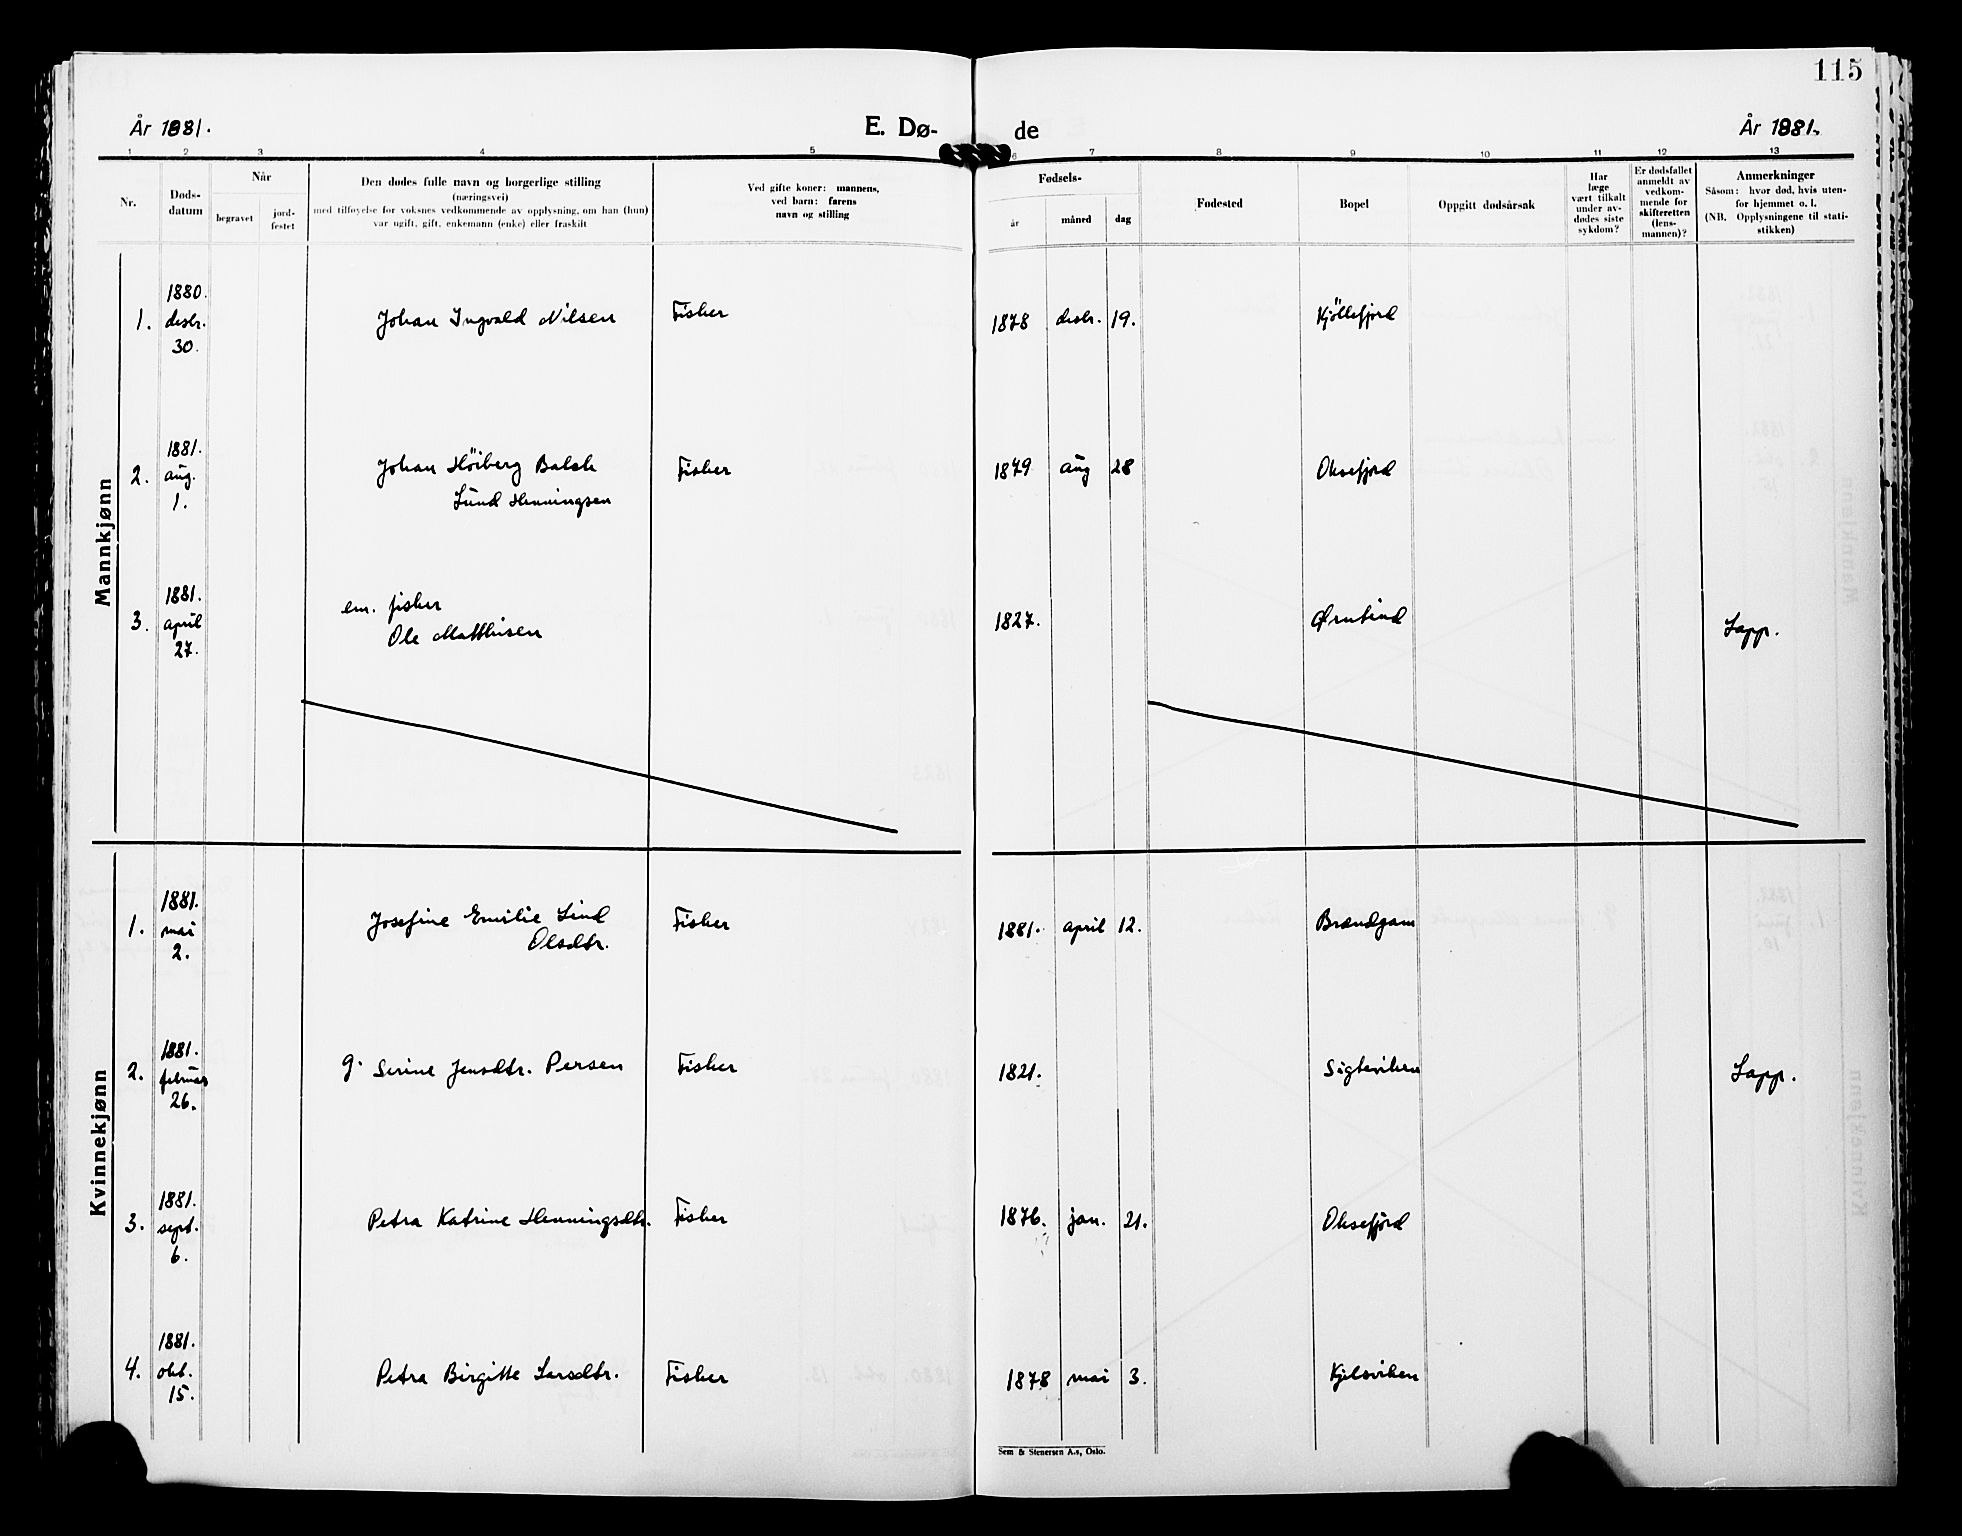 115
År 1881.
E. Dø-
de
År 1881.
1 2 3 4 5 6 7 8 9 10 11 12 13
Nr.
Døds-
datum
Når
begravet
jord-
festet
Den dødes fulle navn og borgerlige stilling
(næringsvei)
med tilføyelse for voksnes vedkommende av opplysning, om han (hun)
var ugift, gift, enkemann (enke) eller fraskilt
Ved gifte koner: mannens,
ved barn: farens
navn og stilling
Fødsels-
år
måned
dag
Fødested
Bopel
Oppgitt dødsårsak
Har
læge
vært tilkalt
under av-
dødes siste
sykdom?
Er dødsfallet
anmeldt av
vedkom-
mende for
skifteretten
(lens-
mannen)?
Anmerkninger
Såsom: hvor død, hvis uten-
for hjemmet o. l.
(NB. Opplysningene til stati-
stikken)
Mannkjønn
1. 1880. desbr. 30. Johan Ingvald Nilsen Fisker 1878 desbr. 19. Kjöllefjord
2. 1881. aug. 1. Johan Höiberg Balch Fisker 1879 aug 28 Oksefjord
Lund Henningsen
3. 1881. april 27. em. fisker
Ole Matthisen 1827. Lapp.
Kvinnekjønn
1. 1881. mai 2. Josefine Emilie Lind Fisker 1881. april 12. Brandgam
Olsdtr.
2. 1881. februar 26. g. Serine Jensdtr. Persen Fisker 1821. Sigleviken Lapp.
3. 1881. sept. 6. Petra Katrine Henningsdtr. Fisker 1876. jan. 21. Oksefjord
4. 1881. okt. 15. Petra Birgitte Larsdtr. Fisker 1878 mai 3. Kjelsviken
Sem & Stenersen A.s, Oslo.